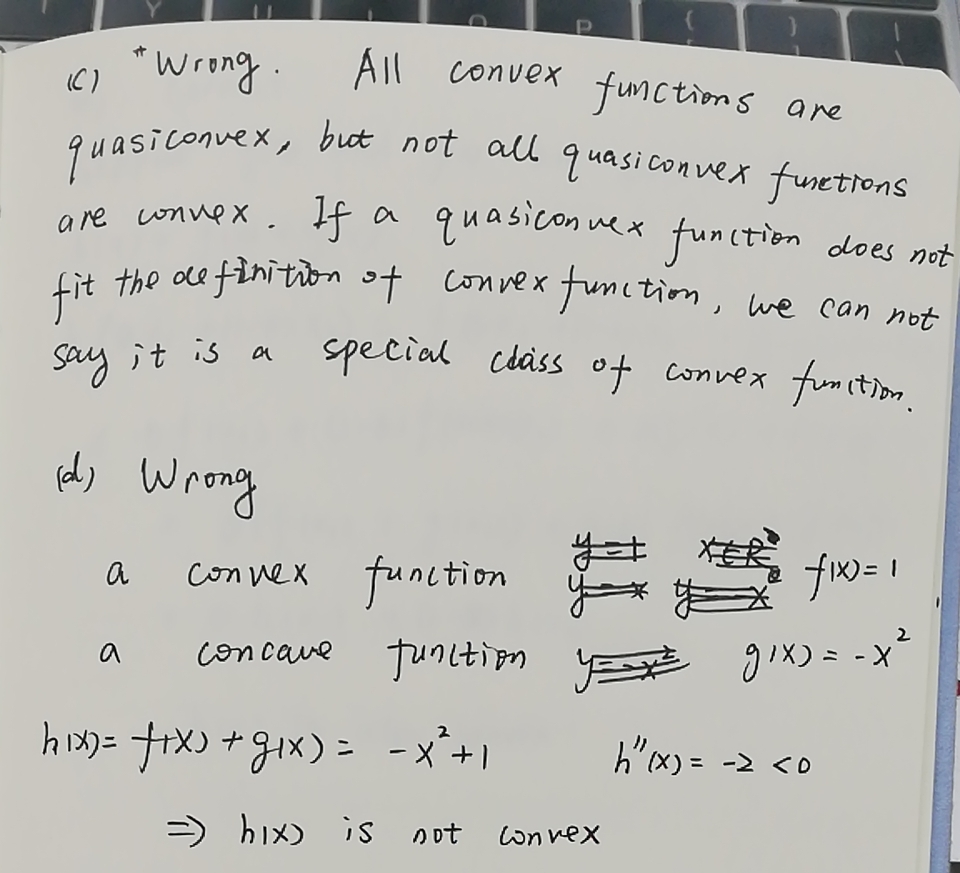 Y U I O P { } \
(c) "Wrong. All convex functions are
quasiconvex, but not all quasiconvex functions
are convex. If a quasiconvex function does not
fit the definition of convex function, we can not
say it is a special class of convex function.
(d) Wrong
a convex function f(x)=1
a concave function g(x) = -x²
h(x)= f(x) + g(x) = -x²+1 h''(x) = -2 <0
⇒ h(x) is not convex